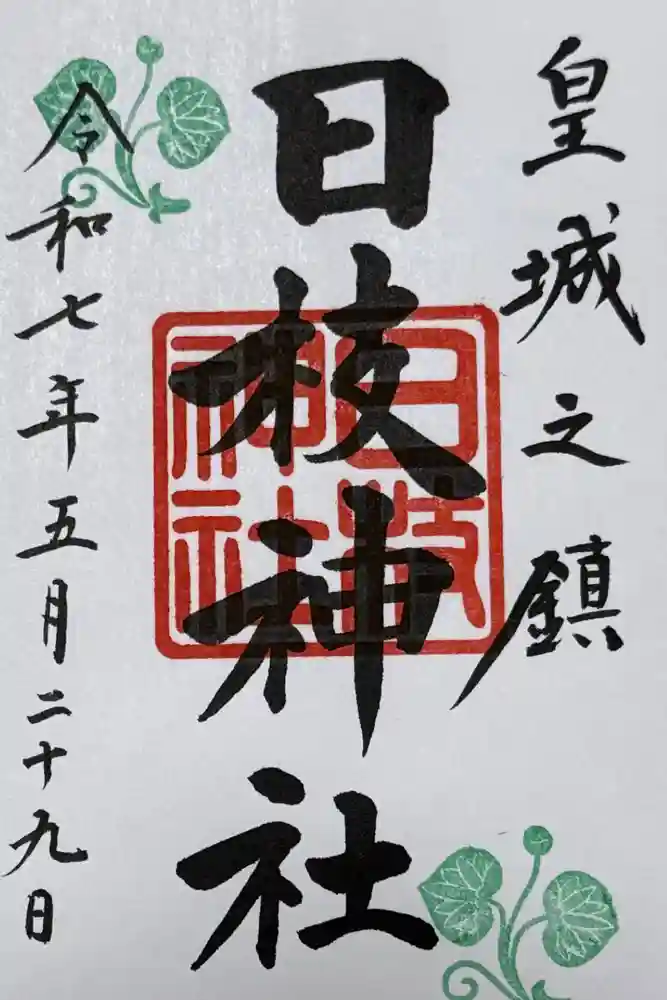 皇城之鎮
日枝神社
日枝神社
令和七年五月二十九日